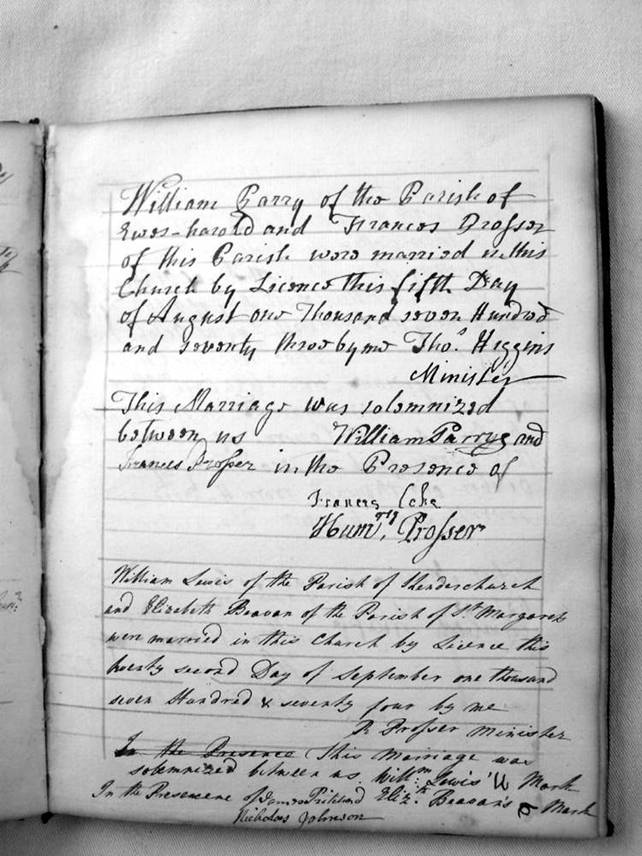 William Parry of the Parish of
Ewes-harold and Frances Prosser
of this Parish were married in this
Church by Licence this fifth Day
of August one Thousand seven Hundred
and seventy three by me Tho.s Higgins
Minister
This Marriage was solemnized
between us William Parry and
Frances Prosser in the Presence of
Frances
Hum.ry Prosser
William Lewis of the Parish of Kenderchurch
and Elizabeth Beavan of the Parish of St. Margaret
were married in this Church by Licence this
twenty second Day of September one thousand
seven Hundred & seventy four by me
P Prosser Minister
In the Presence This Marriage was
solemnized between us Will.m Lewis's Mark
In the Presence of James Pritchard Eliz.th Beavan's Mark
Nicholas Johnson